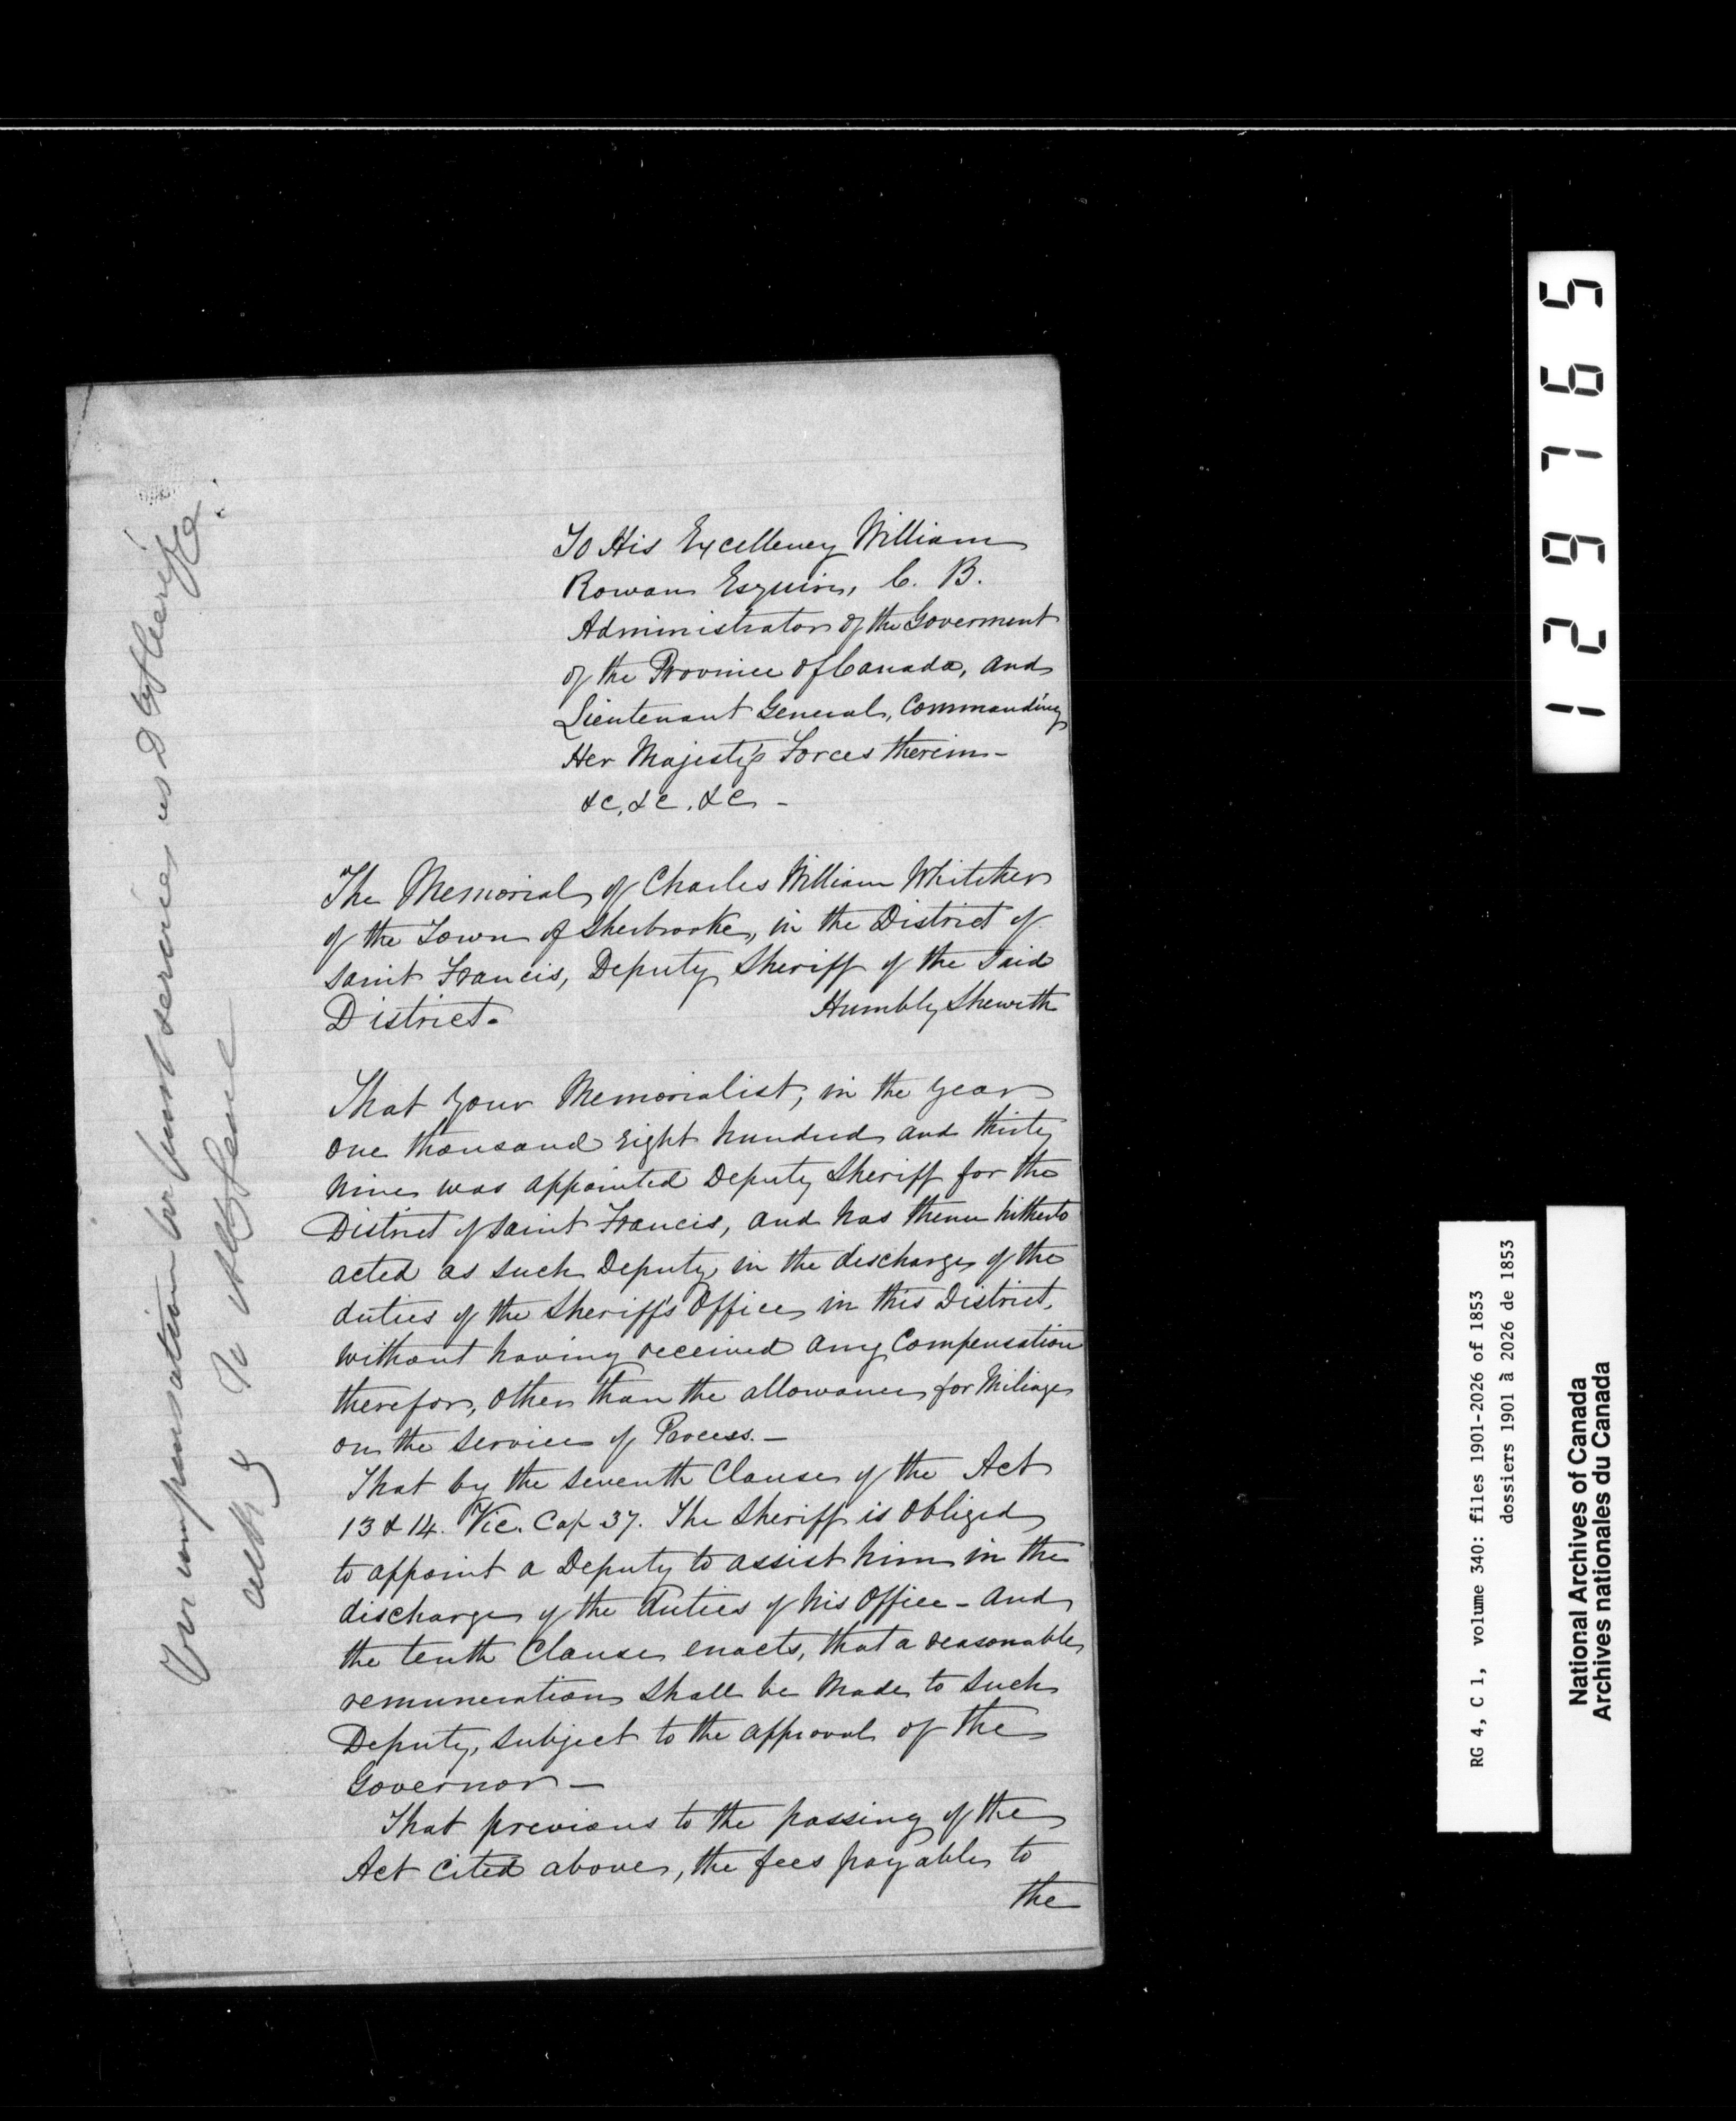 To His Excellency William
Rowan Esquire, C. B.
Administrator of the Goverment
of the Province of Canada, and
Lieutenant General, Commanding
Her Majesty's Forces therein -
&c, &c. &c -
The Memorial of Charles William Whitcher
of the Town of Sherbrooke, in the District of
Saint Francis, Deputy Sheriff of the Said
District.
Humbly Sheweth
That your Memorialist, in the year
one thousand eight hundred and thirty
nine was appointed Deputy Sheriff for the
District of Saint Francis, and has thence hitherto
acted as such Deputy in the discharge of the
duties of the Sheriff's Office in this District,
without having received any Compensation
therefor, other than the allowance for Mileage
on the Service of Process. -
That by the Seventh Clause of the Act
13 & 14. Vic. Cap 37. The Sheriff is obliged
to appoint a Deputy to assist him in the
discharge of the duties of his Office - and
the tenth Clause enacts, that a reasonable
remuneration Shall be Made to Such
Deputy, Subject to the approval of the
Governor -
That previous to the passing of the
Act cited above, the fees payable to
the
For compensation for past services as D Sheriff
129765
RG 4, C 1, volume 340: files 1901-2026 of 1853
dossiers 1901 à 2026 de 1853
National Archives of Canada
Archives nationales du Canada